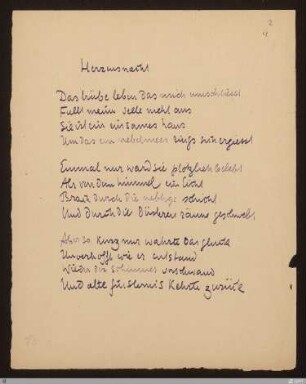 Herzensnacht
Das trübe leben das mich umschliesst
Füllt meine seele nicht aus
Sie ist ein einsames haus
Um das ein nebelmeer rings sich ergiesst
Einmal nur ward sie plötzlich belebt
Als von dem himmel ein licht
Brach durch die neblige schicht
Und durch die düsteren räume geschwebt
Aber so kurz nur wahrte das glück
Unverhofft wie es entstand
Wieder der schimmer verschwand
Und alte finsternis kehrte zurück